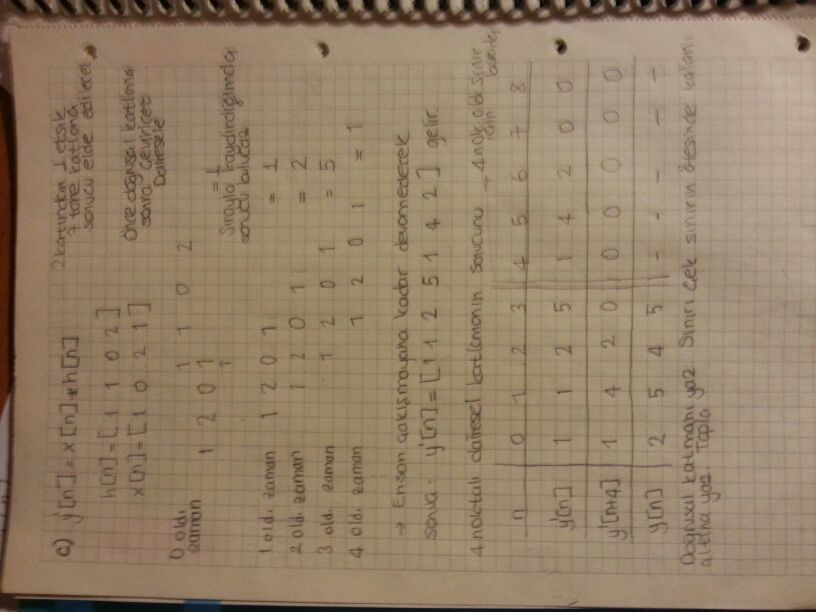 c) y'[n] = x[n] * h[n]
h[n] = [ 1 1 0 2 ]
x[n] = [ 1 0 2 1 ]
2 katından 1 eksik
7 tane katlama
sonucu elde edilecek
Önce doğrusal katlama
sonra çeviricez
Dairesele
0 oldı zaman
1 1 0 2
1 2 0 1 = 1
↑
Sırayla kaydırdığımda
sonucu bulucaz
1 oldı zaman 1 2 0 1 = 1
2 oldı zaman 1 2 0 1 = 2
3 oldı zaman 1 2 0 1 = 5
4 oldı zaman 1 2 0 1 = 1
→ En son çakışmayana kadar devam edecek
sonra: y'[n] = [ 1 1 2 5 1 4 2 ] gelir.
4 noktalı dairesel katlamanın sonucunu → 4 nok. oldı. sınır
için
n 0 1 2 3 4 5 6 7 8
y'[n] 1 1 2 5 1 4 2 0 0
y'[n+4] 1 4 2 0 0 0 0 0 0
y[n] 2 5 4 5 - - - - -
Doğrusal katmanı yaz Sınırı çek sınırın ötesinde kalanı
altına yaz Topla